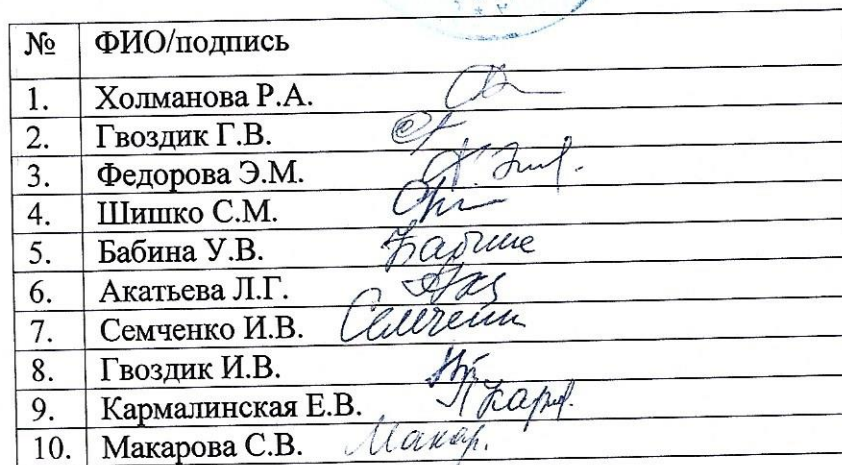 № ФИО/подпись
1. Холманова Р.А.
2. Гвоздик Г.В.
3. Федорова Э.М.
4. Шишко С.М.
5. Бабина У.В.
6. Акатьева Л.Г.
7. Семченко И.В.
8. Гвоздик И.В.
9. Кармалинская Е.В.
10. Макарова С.В. Макар.